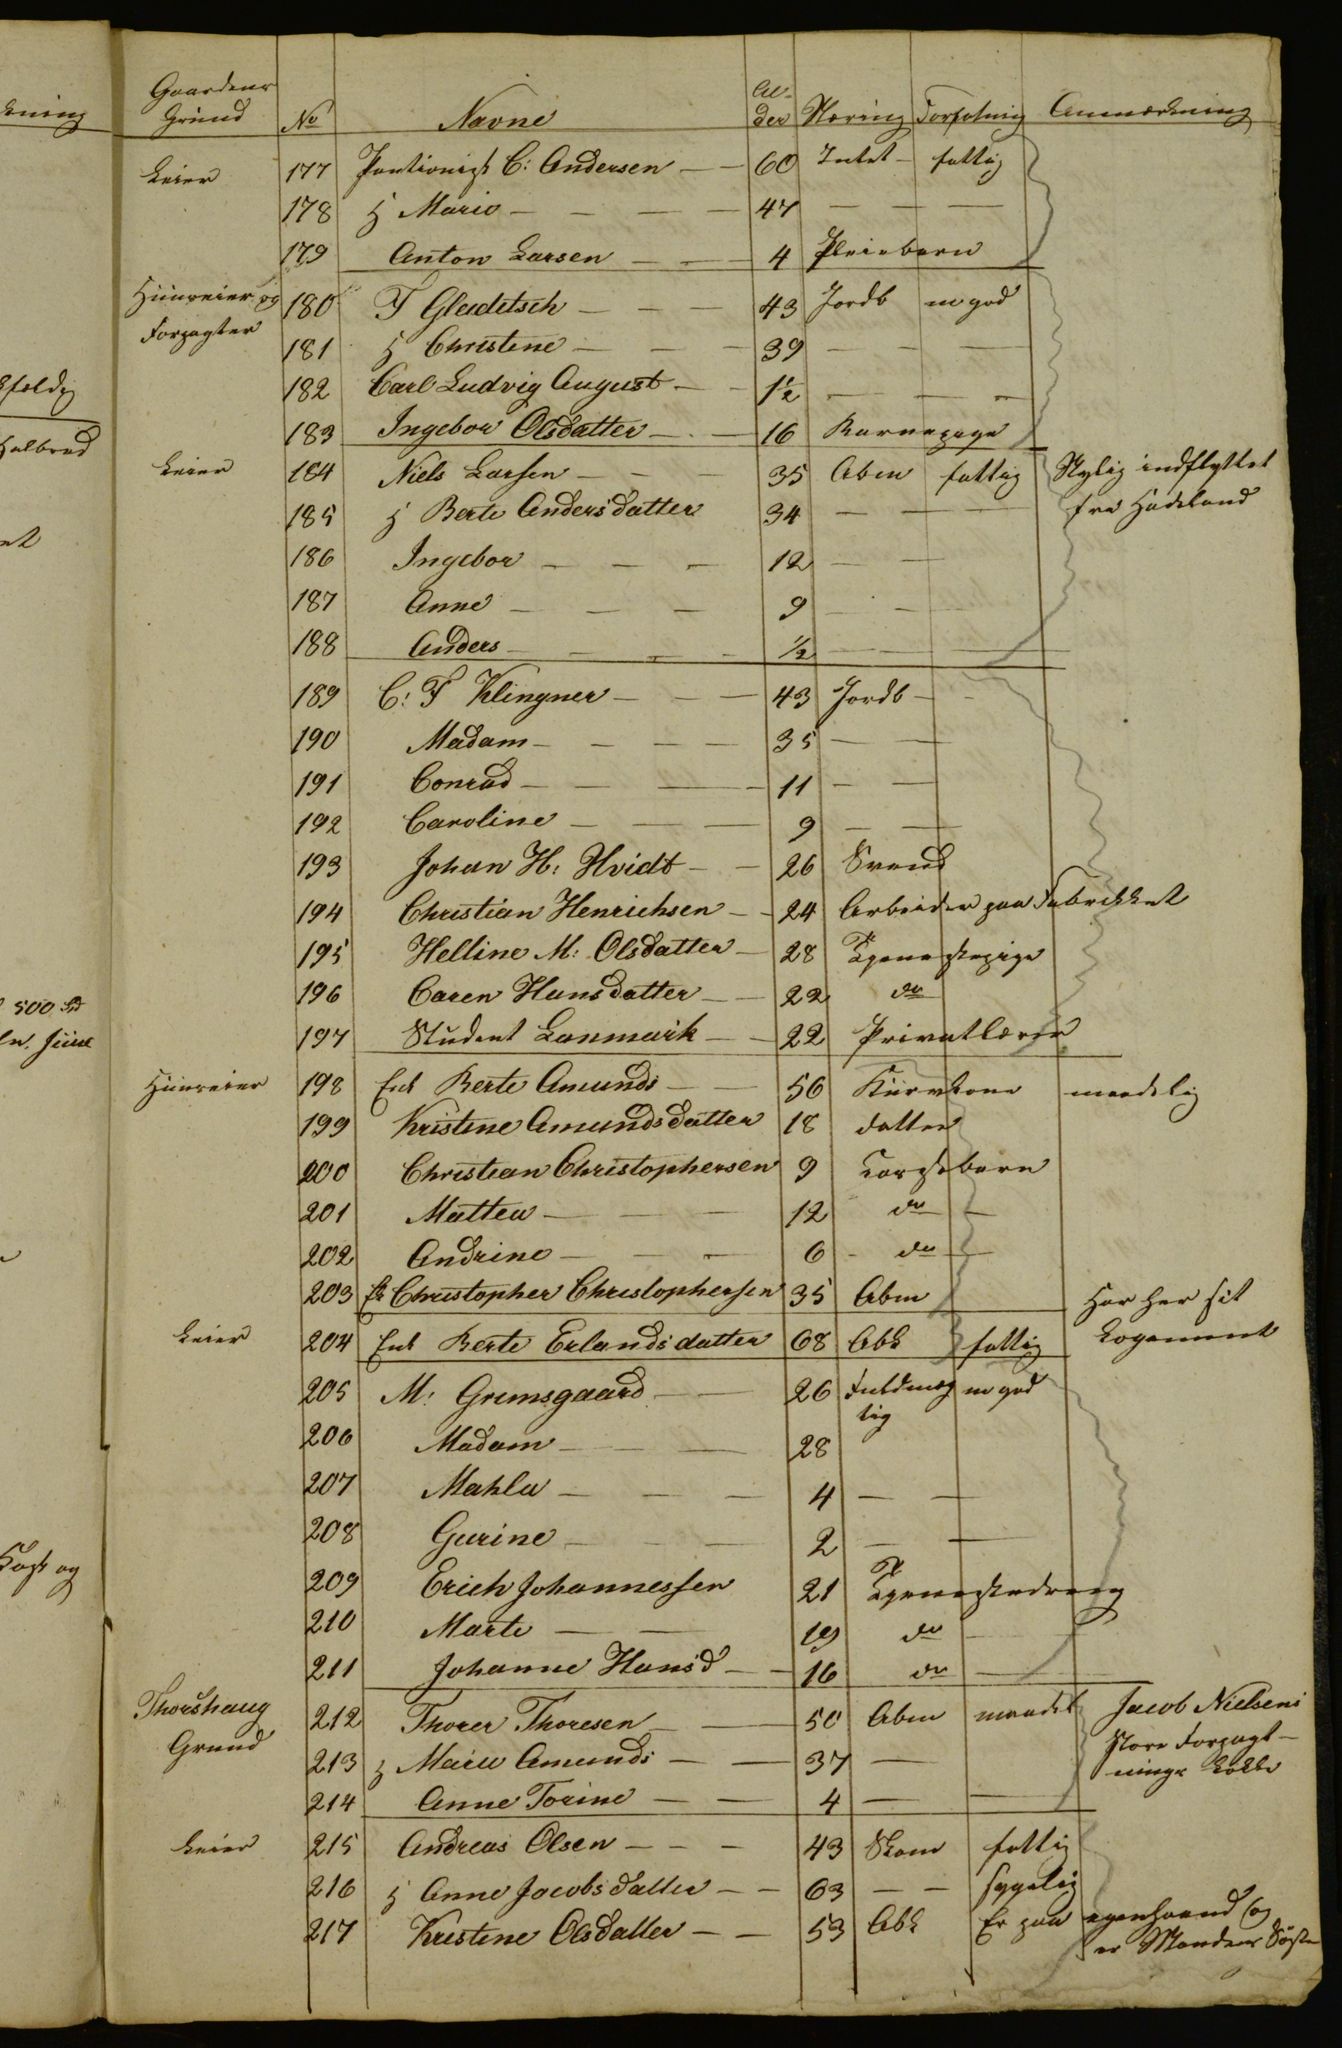 Gaardens Grund No Navne Alder Næring Forfatning Anmærkning
Leier 177 Pentionist C: Andersen 60 Intet fattig
178 H Marie 47
179 Anton Larsen 4 Pleiebarn
Huuseier og Forpagter 180 F Gleditsch 43 Jordb m god
181 H Christine 39
182 Carl Ludvig August 1½
183 Ingebor Olsdatter 16 Barnepige
Leier 184 Niels Larsen 35 Abm fattig Nylig indflyttet
185 H Berte Andersdatter 34 fra Hadeland
186 Ingebor 12
187 Anne 9
188 Anders ½
189 C: F Klingner 43 Jordb
190 Madam 35
191 Conrad 11
192 Caroline 9
193 Johan H: Hvidt 26 Svend
194 Christian Henrichsen 24 Arbeider paa Fabrikket
195 Helline M: Olsdatter 28 Tjenestepige
196 Caren Hansdatter 22 do
197 Student Lanmark 22 Privatlærer
Huuseier 198 Enk Berte Amunds 56 maadelig
199 Kristine Amundsdatter 18 datter
200 Christian Christophersen 9 Losgebarn
201 Mattea 12 do
202 Andrine 6 do
203 Christopher Christophersen 35 Abm Har her sit
Leier 204 Enk Berte Erlandsdatter 68 Abk fattig Logement
205 M: Gremsgaard 26 Fuldmæg m god
tig
206 Madam 28
207 Mahla 4
208 Gurine 2
209 Erich Johannessen 21 Tjenestedreng
210 Marte 19 do
211 Johanne Hansd 16 do
Thorshaug 212 Thorer Thoresen 50 Abm maadel Jacob Nielsens
Grund 213 H Maria Amunds 37 store Forpagt-
214 Anne Torine 4 nings Løkke
Leier 215 Andreas Olsen 43 Skom fattig
216 H Anne Jacobsdatter 63 sygelig
217 Kristine Olsdatter 53 Abk Er paa egenhaand og
er Mandens Søster